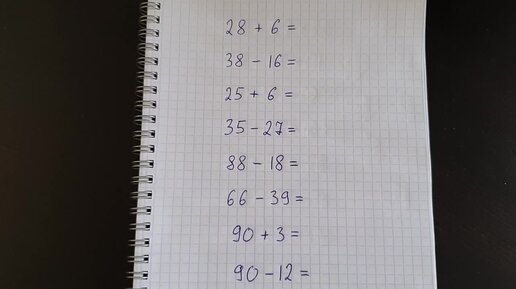 28 + 6 =
38 - 16 =
25 + 6 =
35 - 27 =
88 - 18 =
66 - 39 =
90 + 3 =
90 - 12 =